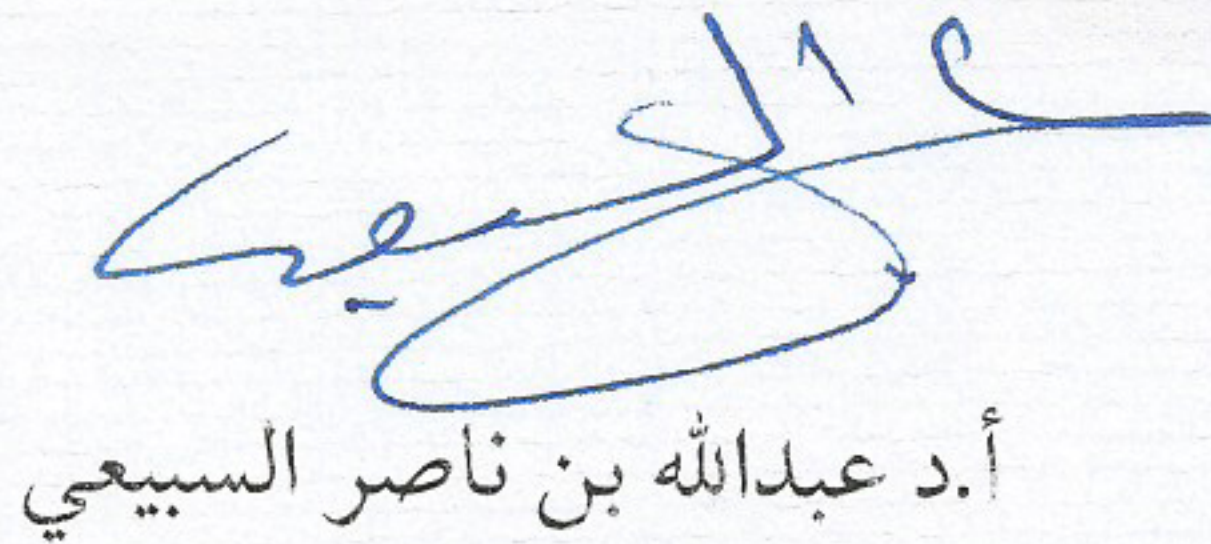 أ.د عبدالله بن ناصر السبيعي